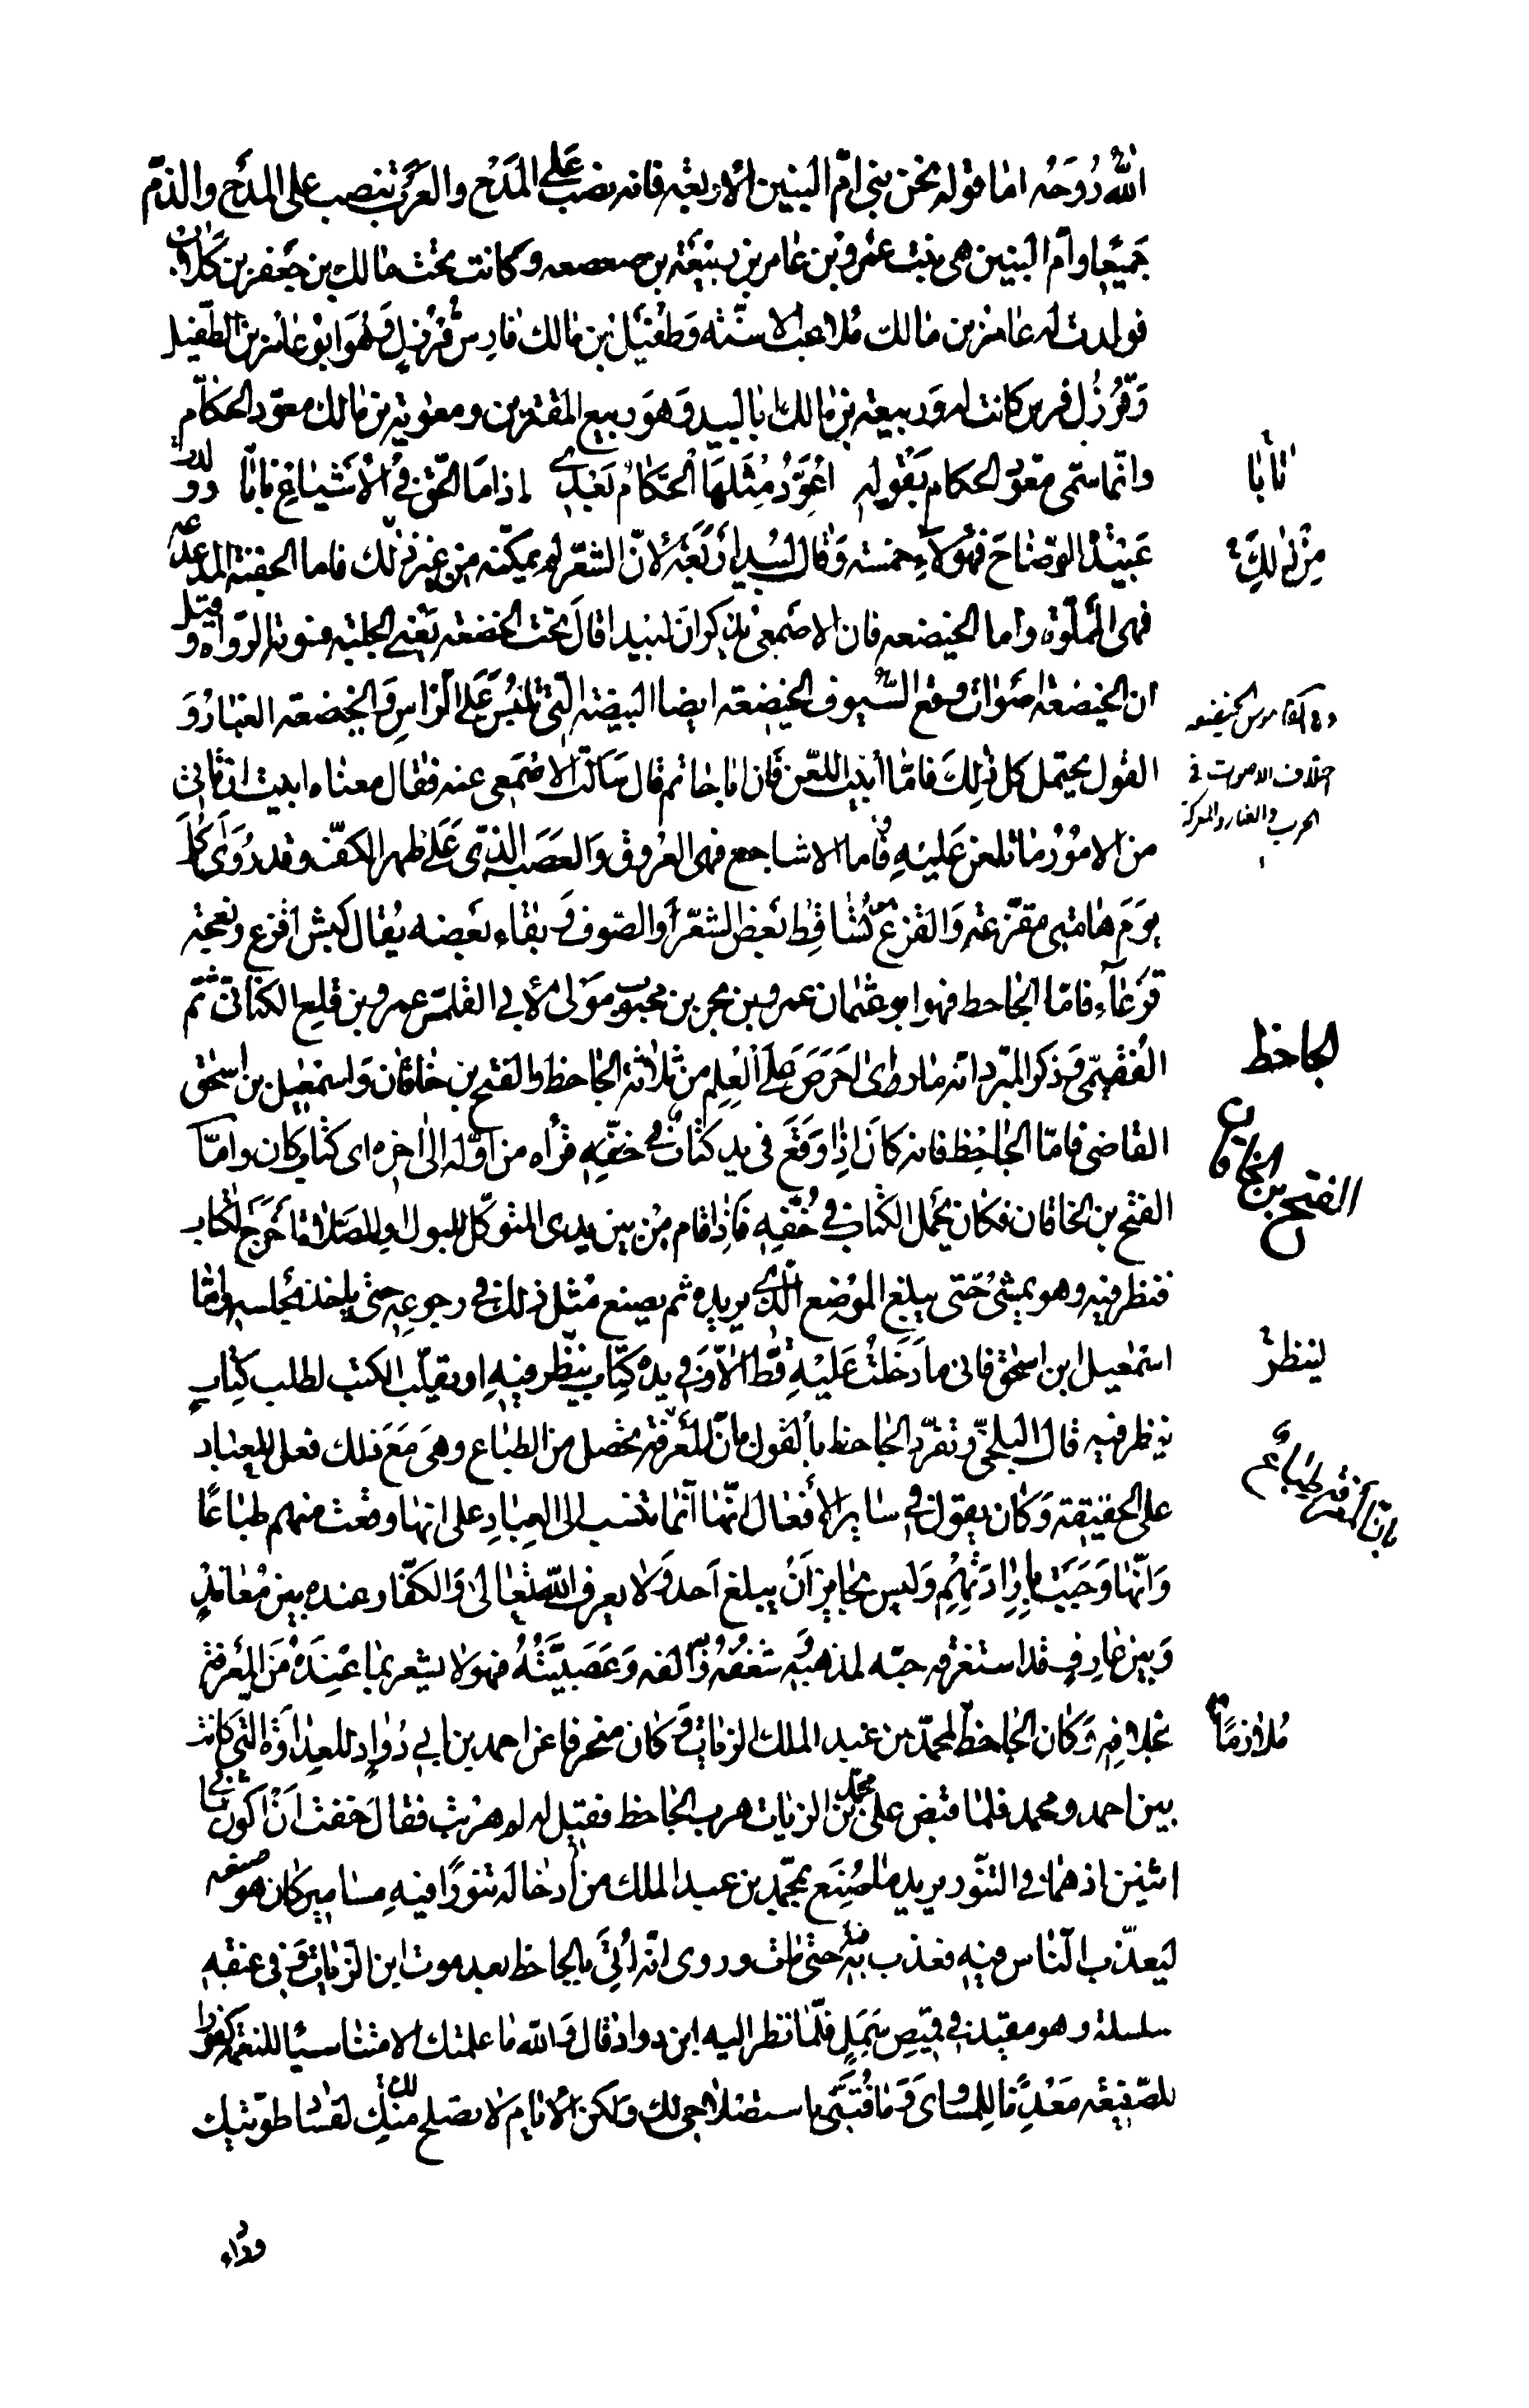 الله رُوحَه اما قوله نحن بني امّ البنين الاربعة فانه نصب على المَدْح والعرب تنصب على المدح والذمّ
جميعًا وامّ البنين هي بنت عمرو بن عامر بن ربيعة بن صعصعه وكانت تحت مالك بن جعفر بن كلاب
فولدت له عامر بن مالك مُلاعب الاسنّة وطُفَيْل بن مالك فارس قُرْزُلٍ وهُوَ ابو عامر بن الطّفيل
وقُرْزُل فرس كانت له وربيعة بن مالك ابا لبيد وهو ربيع المقترين ومعوية بن مالك معوّد الحكّام
وانّما سمّى معوّد الحكام بقوله اُعَوِّدُ مِثْلَهَا الْحُكَّامَ بَعْدِي إذا مَا الحَقّ في الْأَشْيَاعِ نَابَا وولدت
نَابَا
عَبِيْدَةَ الوضّاحَ فهؤلاءِ خمسة وَقَال لبيد أَرْبَعَة لانّ الشعر لم يمكّنه من غير ذلك فاما الجفنة المدعدعه
مِنْ ذٰلِكَ
فهى المملوّة واما الخيضعه فان الاصمعي يذكر ان لبيدا قال تحت الخضعة يَعْنِي الجلبة فسوته الرّواة وقيل
ان الخيضعة اصوات وقع السّيوف والخيضعة ايضا البيضة الّتي تلبس على الرّاسِ والخيضعة الغبار وَ
وفي القاموس الخيضعه
القول يحتمل كل ذلِكَ فامّا ابيت اللعن فان ابا حاتم قال سالت الاصمعي عنه فقال معناه ابيت ان تأتي
اختلاف الاصوات في
الحرب والغبار والمعركة
من الامُوْر ما تلعن عَليهِ وامّا الاشاجع فهى العروق والعصب الذى عَلَى ظهر الكفّ وقد رُوىَ اكلَّ
يومَ هامتي مقزّعة وَالقزع تساقط بعض الشعر أو الصوف وبقاء بعضه يُقال كبش اقزع ونعجة
قَزعآء فامّا الجاحظ فهو ابو عثمان عمرو بن بحر بن محبوب مَولى لأبي القلمّس عمرو بن قلع الكناني ثمّ
الفُقَيمي وذكر المبرد انه ما راى احرَصَ على العِلِم من ثلاثة الجاحظ والفتح بن خاقان واسمعيل بن اسحق
الجاحظ
القاضى فامّا الجاحظ فانه كانَ اذا وَقَعَ في يد كتاب في خفّه قرأه من اوّله الى اخره اى كتاب كان وامّا
الفتح بن الخاقان
الفتح بن الخاقان فكان يحمل الكتاب في خُفّهِ فَإذا قام مِنْ بين يدى المتوكّل للبول او للصّلاة أَخرَجَ الكتاب
فنظر فيه وهو يمشى حتى يبلغ الموضع الّذي يريده ثم يصنع مثل ذلك في رجوعه حتى ياخذ مجلسه وامّا
اسمعيل ابن اسحق فانى ما دَخلتُ عَليْهِ قطّ الّا وَفي يده كتاب ينظر فيه او يقلّب الكتب لطلب كتابٍ
لينظر
ينظر فيه قال البلخيّ وتفرّد الجاحظ بالقول بانّ المعرفة تحصل من الطباع وهى مَعَ ذلك فعل للعباد
بانّ المعرفة طباعُ
على الحقيقة وكان يقول في سايرالأفعال انّها انّما تنسب الى العِبادِ على انها وقعت منهم طباعًا
وَانّها وَجَبَت بِإرِادَتِهِم وَليس بجايز اَنْ يبلغ اَحد وَلا يعرف الله تعالى والكفّار عنده بين مُعَانِدٍ
وَبين عارفٍ قد استغرقه حبّه لمذهبه وشغفه وَالفه وَعَصَبيَّتُهُ فهو لا يشعر بما عِندَه من المعرفة
بخلافه وَكان الجاحظ لمحمّد بن عبد الملك الزيات وَكان منحرفا عن احمد بن ابي دُوادٍ للعِداوَة الّتى كانت
مُلازمًا
بين احمد ومحمد فلما قبض على محمد بن الزيات هرب الجاحظ فقيل له لم هربت فقال خفت اَنْ اكون ثاني
اثنين اذ هما في التنّور يريد ما صُنِع بمحمّد بن عبد الملك من أدخاله تنورًا فيه مسامير كان هو صنعه
ليعذّب النّاس فيه فعذب به حتى مات وروى انّه اُتِيَ بالجاحظ بعد موت ابن الزيات وفي عنقه
سلسلة وهو مقيّد في قميصٍ سَمِلٍ فلّما نظر اليه ابن دواد قال وَالله ما علمتك الا متناسيًا للنعمة كفورا
للصّنيعة مَعْدِنًا لِلمساوى وَمَا فُتّنى باستصلاحى لك ولكن الأيام لا تصلح منك لفساد طويتك
ورداءِ